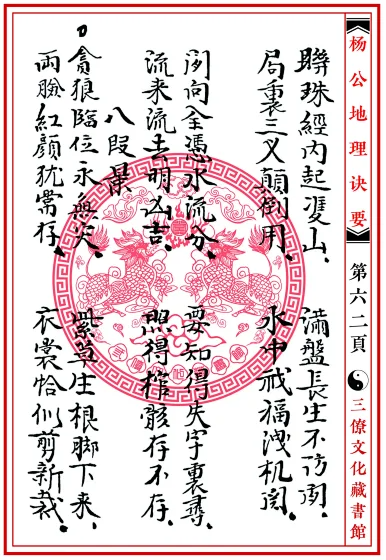 《杨公地理诀要》 第六二頁 三僚文化藏書館
聯珠經內起隻山、滿盤長生不访闲、
局裏三叉顛倒用、水中戒福洩机関、
向全憑水流分、要知得失字裏尋、
流来流去明凶吉、照得棺骸存不存、
八段景
貪狼臨位永無灾、紫草生根脚下来、
兩臉紅顏犹常存、衣裳恰似剪新裁、